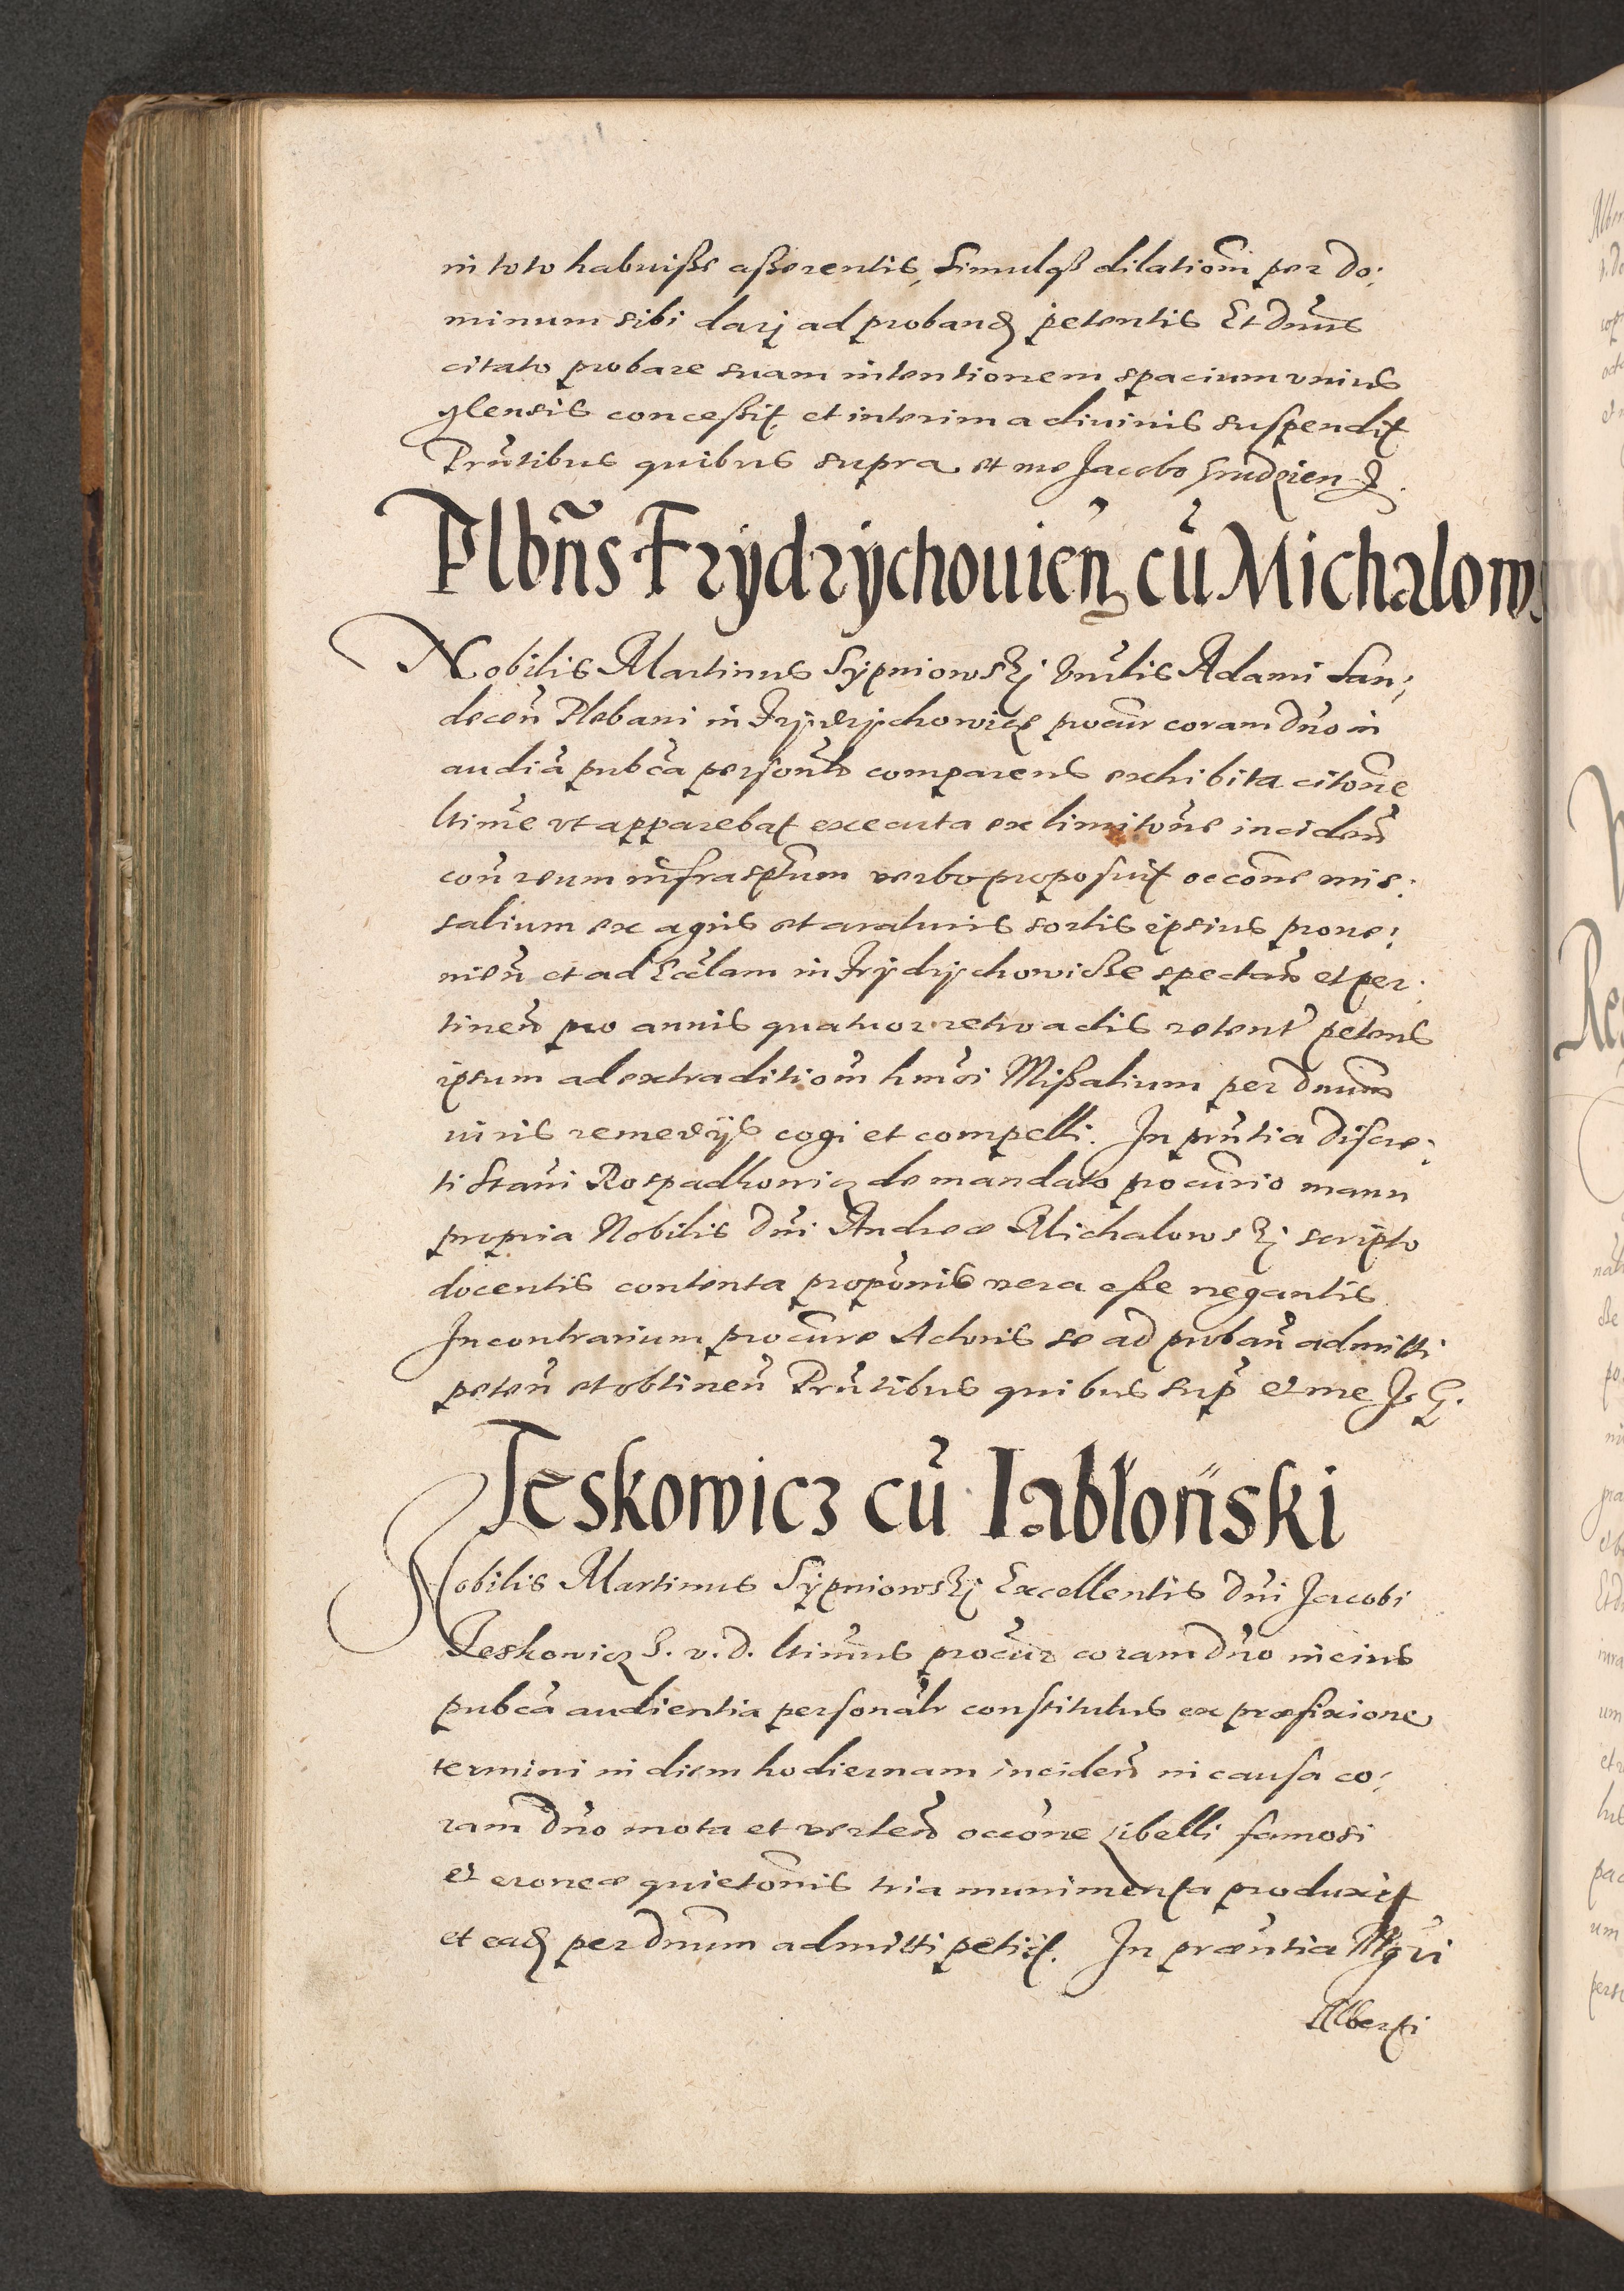 in toto habuisse asserentis, simulqꝫ dilationẽ per do:
minum sibi darj ad proband petentis Et Dnũs
citato probare suam intentionem spacium vnius
glensis concessit et interim a diuinis suspendit
Prñtibus quibus supra et me Jacobo Grudzien
Plbñs Frydrychouien cũ Michalows
Nobilis Martinus Sypniowskj Vnrlis Adami San:
decen̄ Plebani in Frydrychowicz procũr coram Dño in
audiã pubcã personlr comparens exhibita citone
ltime vt apparebat executa ex limitone inciden̄
con̄ reum infrasptum verbo proposuit occone mis:
salium ex agris et araturis sortis ipsius proue:
nien̄ et ad Ecclam in Frydrychowicze spectan̄ et per:
tinen̄ pro annis quatuor retroactis retent petens
ipsum ad extraditiom hmoi Missalium per Dnum
iuris remedijs cogi et compelli. In prntia Discre:
ti Stani Rospadkowicz de mandato procurio manu
propria Nobilis Dni Andreæ Michalowskj scripto
docentis contenta propõnis vera esse negantis
In contrarium procure Actoris se ad proban̄ admitti
peten̄ et obtinen̄ Prñtibus quibus sup et me J. G.
Jeskowicz cũ Jabłoński
Nobilis Martinus Sypniowskj Excellentis Dni Jacobi
Jeskowicz J. v. d. ltimus procur coram Dño in eius
pubca audientia personalr constitutus ex præfixione
termini in diem hodiernam inciden̄ in causa co:
ram Dño mota et verten̄ occone libelli famosi
et eroneæ quietonis tria munimenta produxit
et ead per Dnum admitti petiit. In præntia Mgci
Alberti